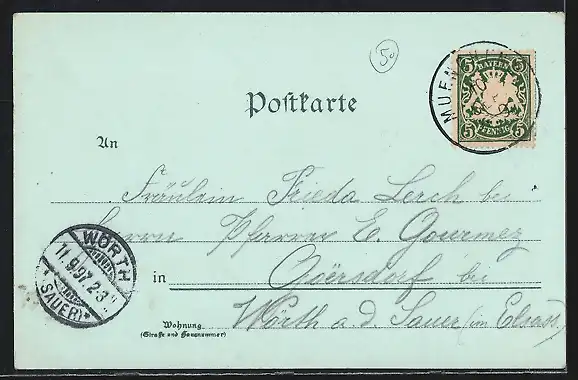 50
5 BAYERN 5
5 PFENNIG 5
MUENCHEN
Postkarte
An
Fräulein Frieda Lerch bei
Herrn Pfarrer E. Gourmez
in Görsdorf bei
Wörth a. d. Sauer (im Elsass)
WÖRTH
11.9.97. 2-3
* (SAUER) *
Wohnung
(Straße und Hausnummer)